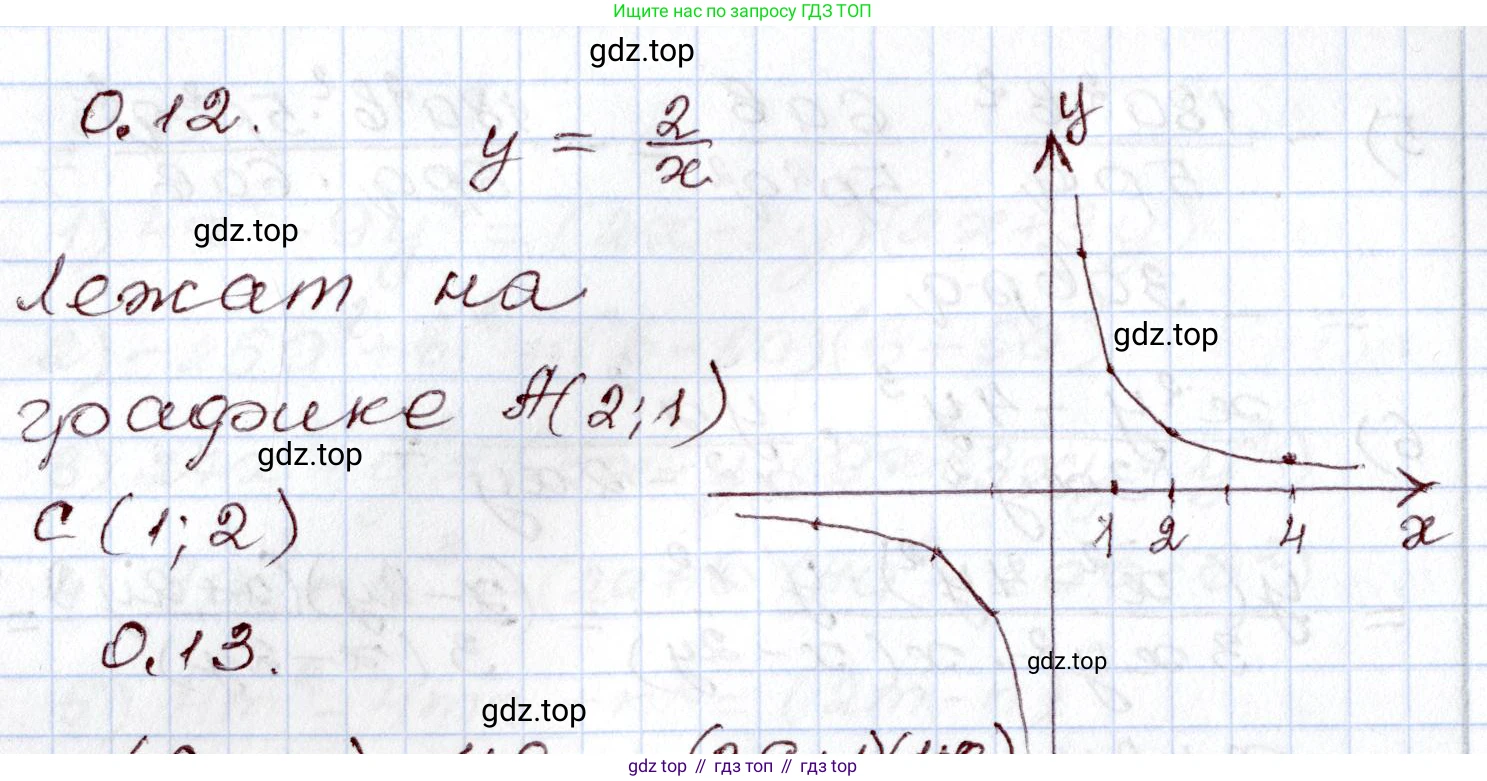 Ищите нас по запросу ГДЗ ТОП
gdz.top
0.12. y = 2/x
y
gdz.top
Лежат на
gdz.top
графике А(2;1)
gdz.top
C (1;2)
1 2 4 x
0.13.
gdz.top
gdz.top
gdz top // гдз топ // гдз top